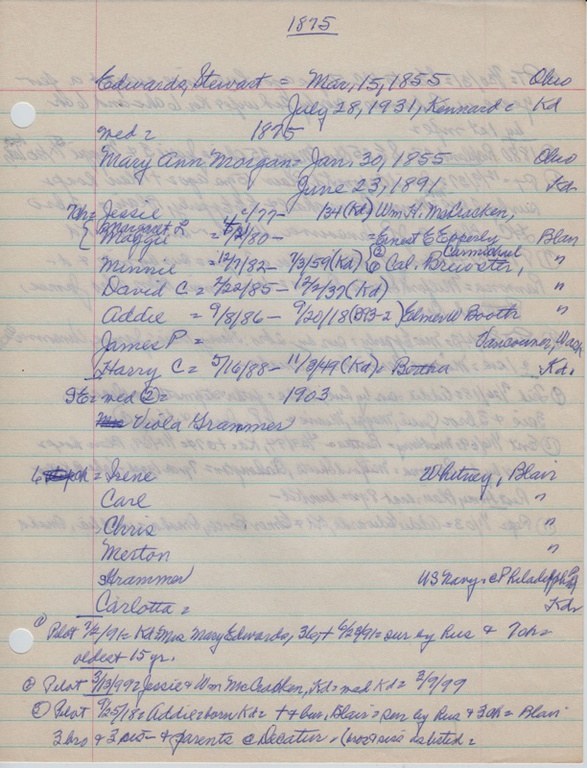 1875
Edwards, Stewart = Mar, 15, 1855 Ohio
July 28, 1931, Kennard = Kd
med = 1875
Mary Ann Morgan = Jan, 30, 1855 Ohio
June 23, 1891 Kd
7ch = Jessie /77 - 134 (Kd) Wm H. McCracken,
Margaret L
{ Maggie = /2/80 - = Ernest E Epperly Blair
Minnie = 12/7/82 - 7/3/59 (Kd) ② Cal. Brewster, Carmichael "
David C. = 2/22/85 - 12/2/37 (Kd) "
Addie = 9/8/86 - 9/20/18 (B93-2) Elmer W Booth "
James P = Vancouver, Wash
Harry C = 5/16/88 - 11/3/49 (Kd) = Bertha Kd.
SE = med ② = 1903
Viola Grammer
6 = Irene Whitney, Blair
Carl "
Chris "
Merton "
Grammer US Navy = Philadelphia Pa
Carlotta = Kd
① Pilot 7/2/91 = Kd = Mrs Mary Edwards, 36, + 6/23/91 = sur by hus & 7ch =
oldest 15 yr.
② Pilot 3/13/99 = Jessie & Wm McCracken, Kd = med Kd = 3/9/99
③ Pilot 9/25/18 = Addie = born Kd = + & bur, Blair = sur by hus & 3ch = Blair
3 bro & 3 sist - & parents @ Decatur - (bros & sis as listed =